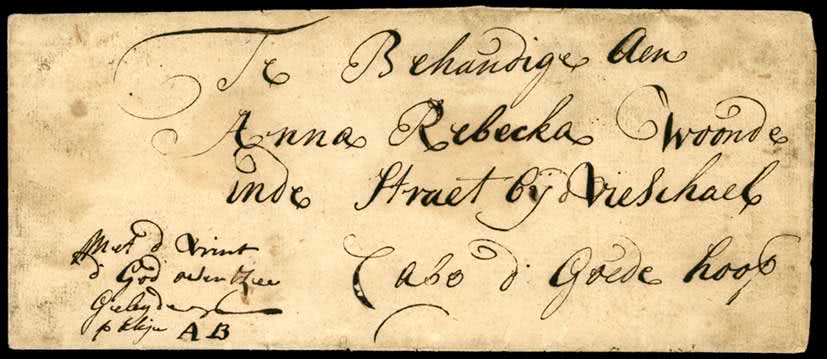 Te Behandige Aen
Anna Rebecka Woonde
inde Straet bij d Vieschael
Cabo d' Goede hoop
Met d Vrint
d' God over Zee
Geleyde
AB